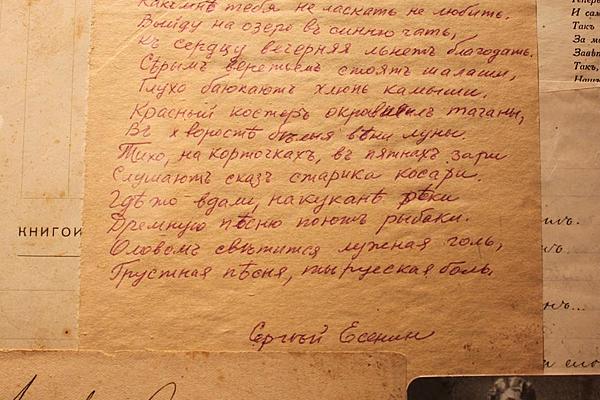 Какъ мнѣ тебя не ласкать не любить.
Выйду на озеро въ синюю гать,
Къ сердцу вечерняя льнетъ благодать.
Сѣрымъ веретьемъ стоятъ шалаши,
Глухо баюкаютъ хлюпь камыши.
Красный костеръ окровилъ таганы,
Въ хворостѣ бѣлыя вѣки луны.
Тихо, на корточкахъ, въ пятнахъ зари
Слушаютъ сказъ старика косари.
Гдѣ то вдали, на кукане рѣки
Дремную пѣсню поютъ рыбаки.
Оловомъ свѣтится лужная голь,
Грустная пѣсня, ты русская боль.
Сергѣй Есенин
КНИГОИ
И сам
Такъ
За м
Завѣт
Такъ,